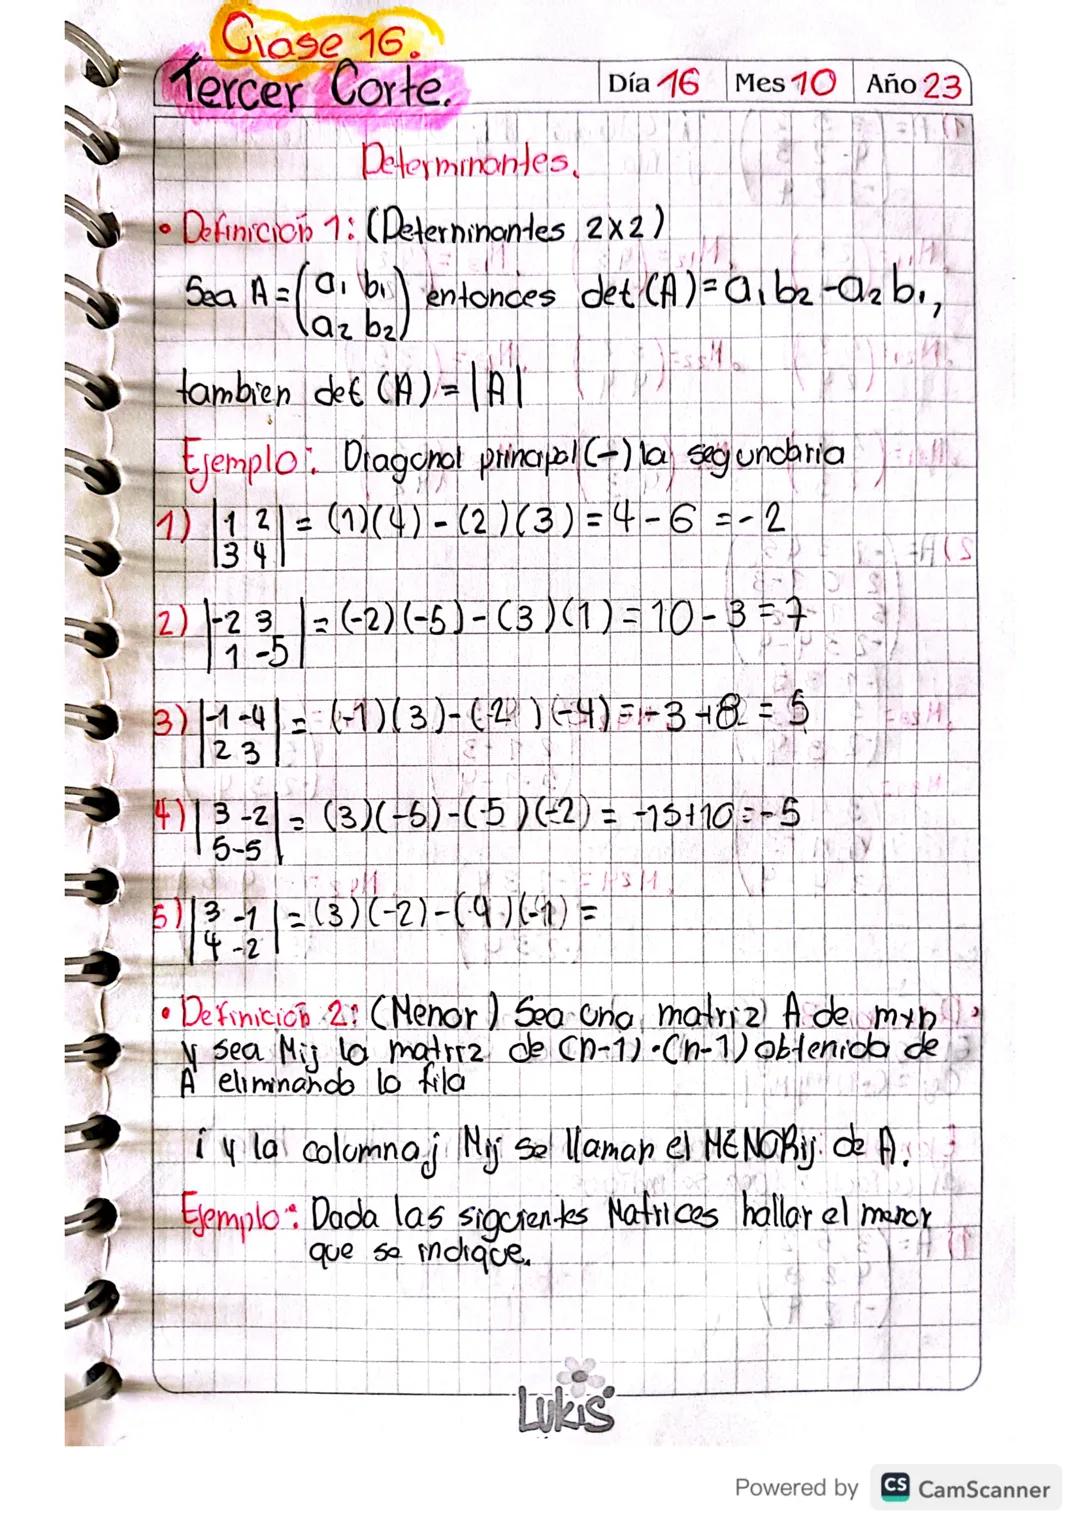 Clase 16.
Tercer Corte.
Día 16 Mes 10 Año 23
Determinantes.
• Definición 1: (Determinantes 2x2)
Sea A = (a₁ b₁ entonces det (A) = a₁b₂ - a₂b₁,
a₂ b₂)
tambien det (A) = |A|
Ejemplo: Diagonal principal (-) la segundaria
1) |1 2| = (1)(4) - (2)(3) = 4 - 6 = -2
3 4
2) |-2 3| = (-2)(-5) - (3)(1) = 10 - 3 = 7
1 -5
3) |-1 -4| = (-1)(3) - (-2)(-4) = -3 + 8 = 5
2 3
4) |3 -2| = (3)(-5) - (5)(-2) = -15 + 10 = -5
5 -5
5) |3 -1| = (3)(-2) - (4)(-1) =
4 -2
• Definición 2: (Menor) Sea una matriz A de mxn
y sea Mij la matriz de (n-1)·(n-1) obtenida de
A eliminando la fila
i y la columna j Mij se llaman el MENORij de A.
Ejemplo: Dada las siguientes Matrices hallar el menor
que se indique.
Lukis
Powered by CS CamScanner